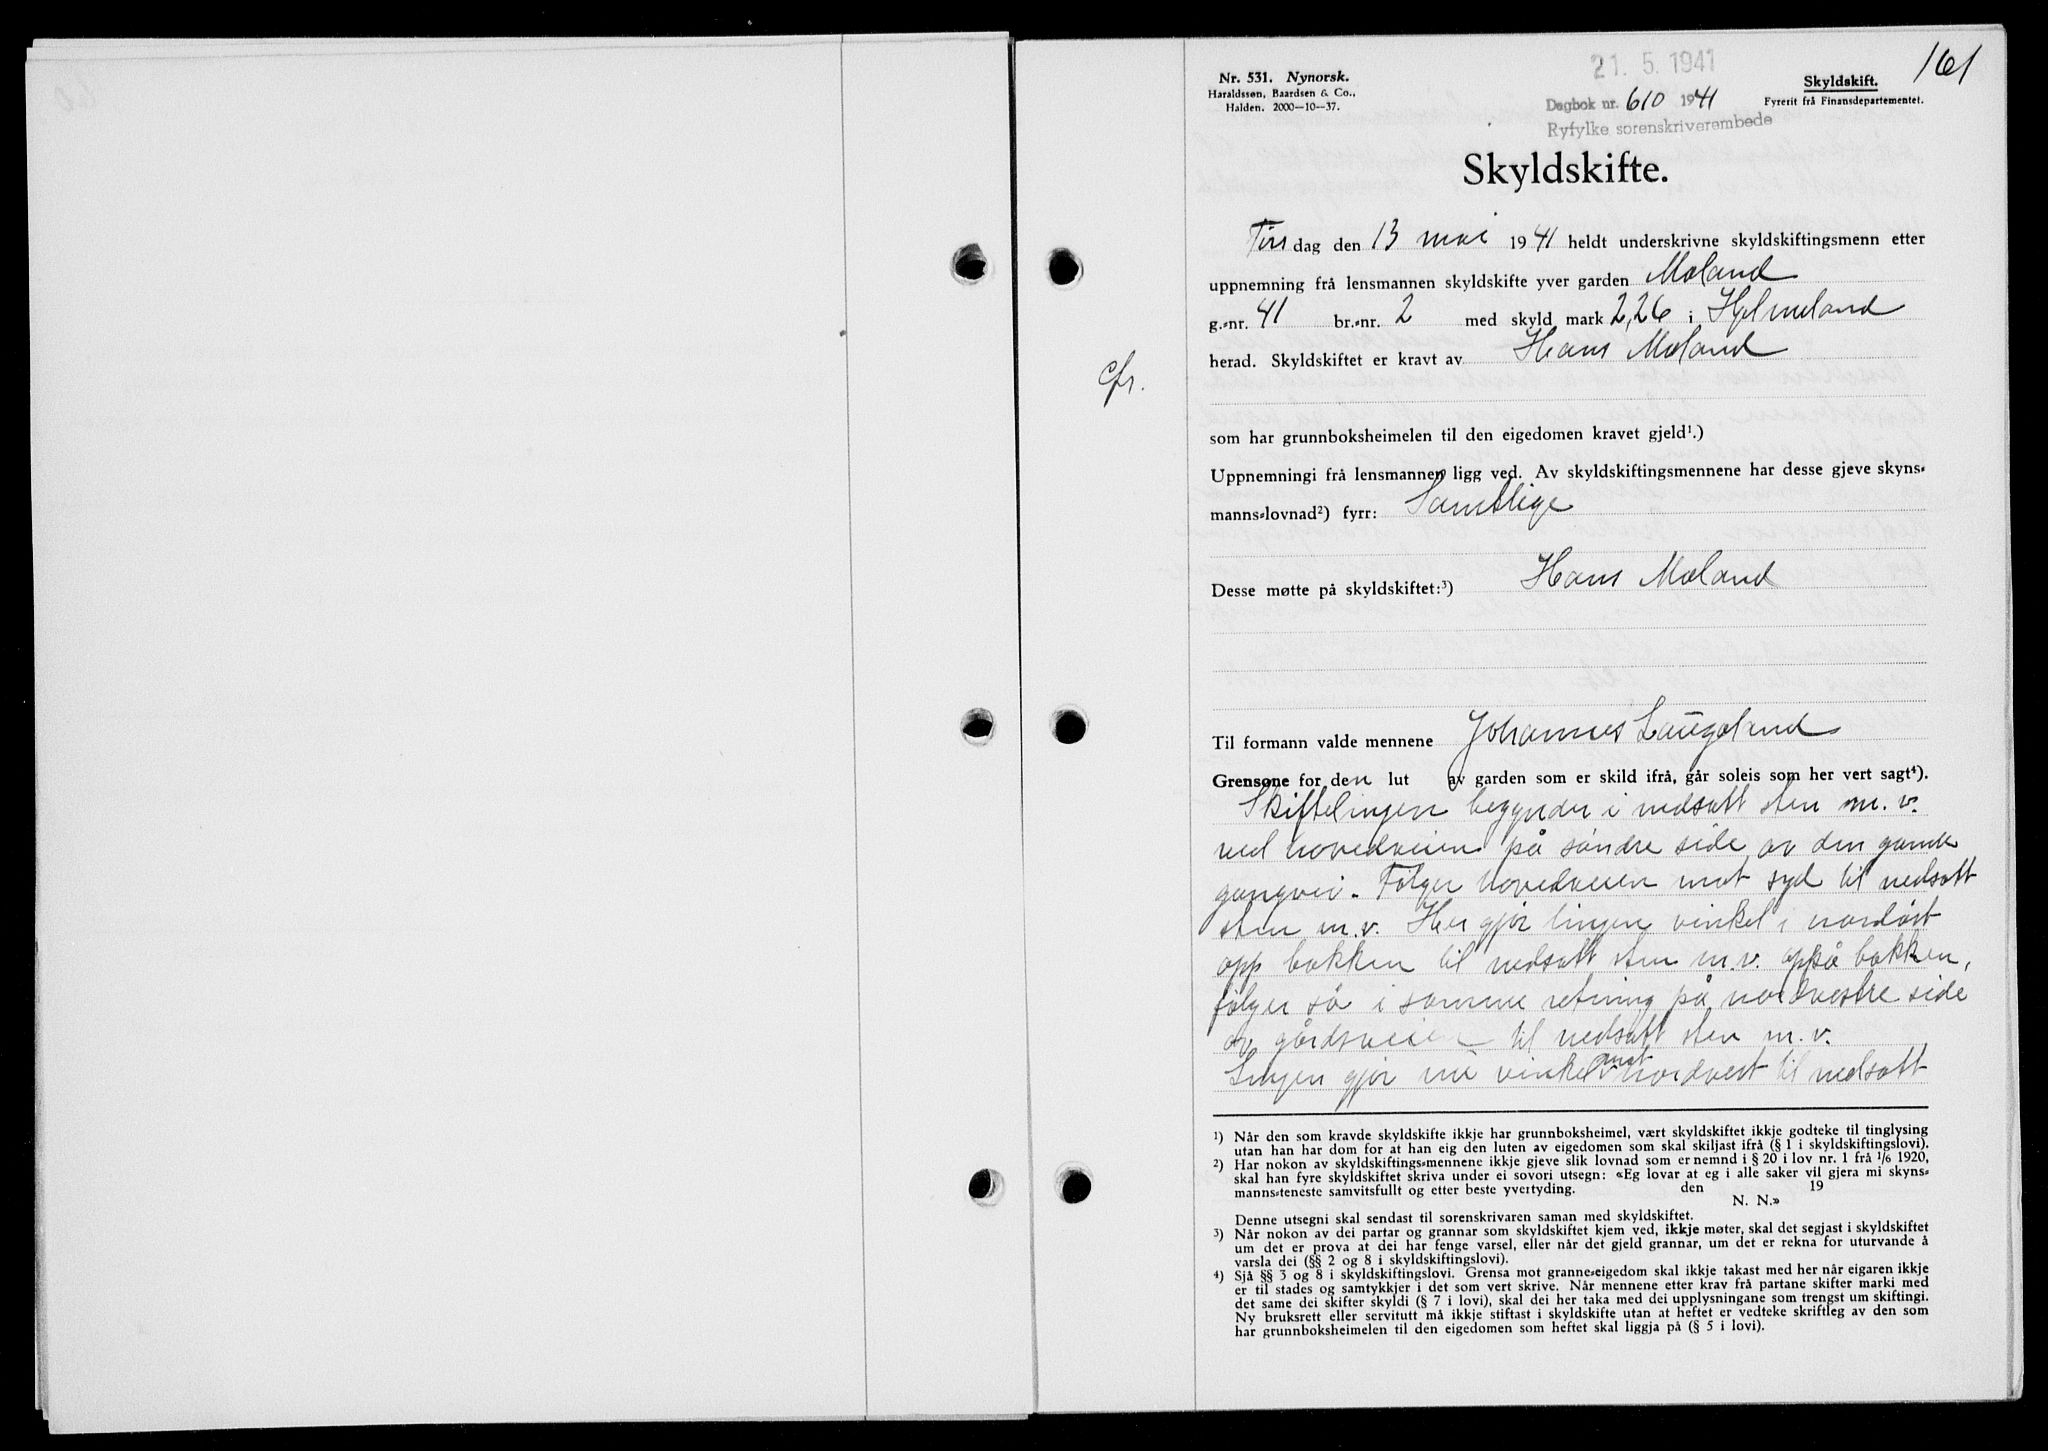 161
21. 5. 1941
Nr. 531. Nynorsk.
Haraldssøn, Baardsen & Co.,
Halden. 2000—10—37.
Dagbok nr. 610 1941
Ryfylke sorenskriverembede
Skyldskift.
Fyrerit frå Finansdepartementet.
Skyldskifte.
Tirsdag den 13 mai 1941 heldt underskrivne skyldskiftingsmenn etter
uppnemning frå lensmannen skyldskifte yver garden Mæland
g.-nr. 41 br.-nr. 2 med skyld mark 2,26 i Hjelmeland
herad. Skyldskiftet er kravt av Hans Mæland
cfr.
som har grunnboksheimelen til den eigedomen kravet gjeld¹.)
Uppnemningi frå lensmannen ligg ved. Av skyldskiftingsmennene har desse gjeve skyns-
manns-lovnad²) fyrr: Samtlige
Desse møtte på skyldskiftet:³) Hans Mæland
Til formann valde mennene Johannes Laugaland
Grensone for den lut av garden som er skild ifrå, går soleis som her vert sagt⁴).
Skiftelinjen begynder i nedsatt sten m.v.
ved hovedveien på søndre side av den gamle
gangvei. Følger hovedveien mot syd til nedsatt
sten m.v. Her gjør linjen vinkel i nordøst
opp bakken til nedsatt sten m.v. oppå bakken,
følger så i samme retning på nordvestre side
av gårdsveien til nedsatt sten m.v.
Linjen gjør nu vinkel mot nordvest til nedsatt
¹) Når den som kravde skyldskifte ikkje har grunnboksheimel, vært skyldskiftet ikkje godteke til tinglysing
utan han har dom for at han eig den luten av eigedomen som skal skiljast ifrå (§ 1 i skyldskiftingslovi).
²) Har nokon av skyldskiftings-mennene ikkje gjeve slik lovnad som er nemnd i § 20 i lov nr. 1 frå 1/6 1920,
skal han fyre skyldskiftet skriva under ei sovori utsegn: «Eg lovar at eg i alle saker vil gjera mi skyns-
manns-teneste samvitsfullt og etter beste yvertyding. den 19
N. N.»
Denne utsegni skal sendast til sorenskrivaren saman med skyldskiftet.
³) Når nokon av dei partar og grannar som skyldskiftet kjem ved, ikkje møter, skal det segjast i skyldskiftet
um det er prova at dei har fenge varsel, eller når det gjeld grannar, um det er rekna for uturvande å
varsla dei (§§ 2 og 8 i skyldskiftingslovi).
⁴) Sjå §§ 3 og 8 i skyldskiftingslovi. Grensa mot granne-eigedom skal ikkje takast med her når eigaren ikkje
er til stades og samtykkjer i det som vert skrive. Når mennene etter krav frå partane skifter marki med
det same dei skifter skyldi (§ 7 i lovi), skal dei her taka med dei upplysningane som trengst um skiftingi.
Ny bruksrett eller servitutt må ikkje stiftast i skyldskifte utan at heftet er vedteke skriftleg av den som
har grunnboksheimelen til den eigedomen som heftet skal liggja på (§ 5 i lovi).